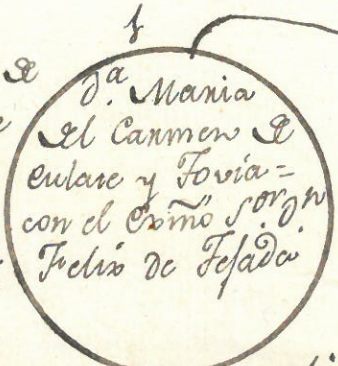 D.ª Maria
del Carmen de
Eulate y Tovia=
con el Exmõ S.or Dn
Felix de Tejada